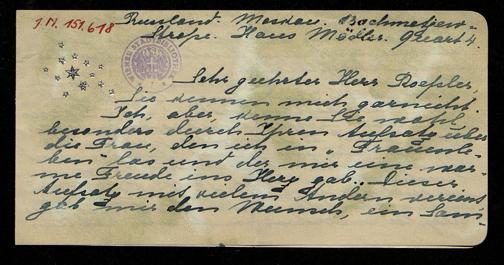 J.N. 151.618
Russland. Moskau. Bachmetjew-
Straße. Haus Mödler. Quart 4.
Sehr geehrter Herr Roessler,
Sie kennen mich garnicht.
Ich, aber, kenne Sie wohl,
besonders durch Ihren Aufsatz über
die Frau, den ich in „Frauenle-
ben" las und der mir eine war-
me Freude ins Herz gab. Dieser
Aufsatz mit vielem Andern vereint
gab mir den Wunsch, ein